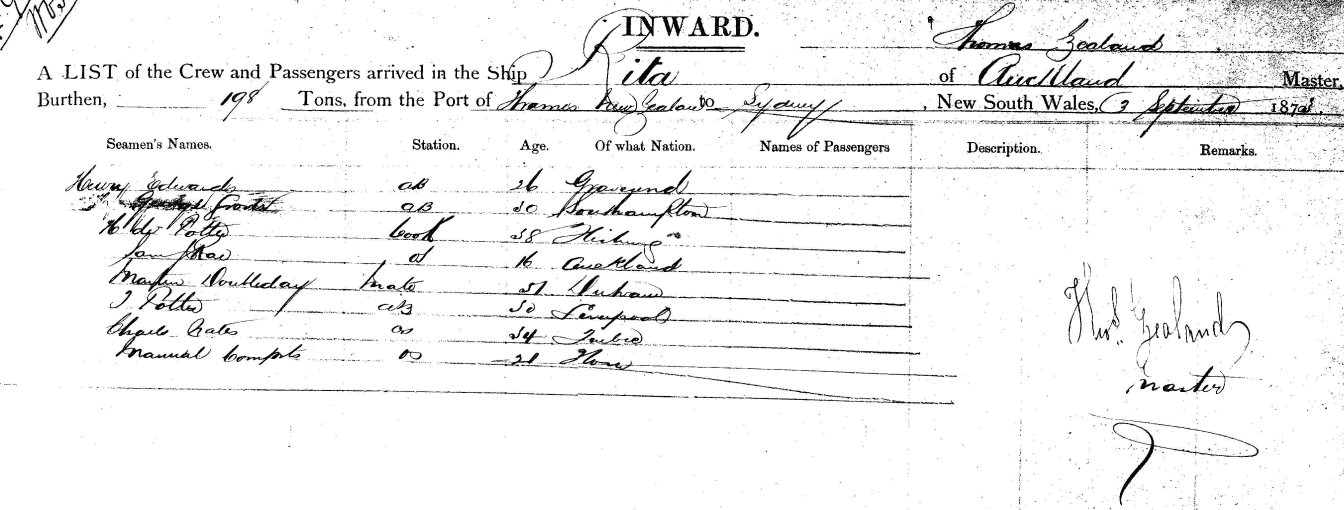 INWARD.
Thomas Gealand
A LIST of the Crew and Passengers arrived in the Ship Rita of Auckland Master,
Burthen, 198 Tons, from the Port of Thames New Zealand to Sydney, New South Wales, 3 September 187
Seamen's Names. Station. Age. Of what Nation. Names of Passengers Description. Remarks.
Henry Edwards AB 26 Gravesend
George AB 30 Southampton
Potter Cook 38
os 16 Auckland
Martin Doubleday Mate 51 Durham
J Potter AB 30 Liverpool
Charles os 34
Manual os 21
Thos. Gealand
Master